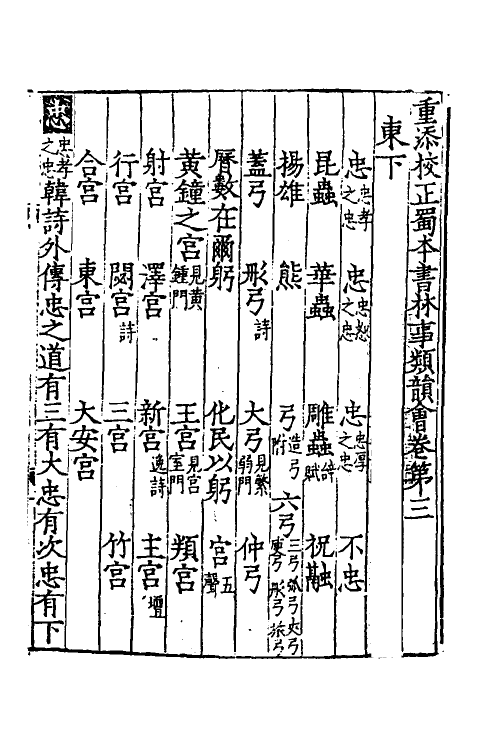 重添校正蜀本書林事類韻會卷第三
東下
忠忠孝之忠 忠忠恕之忠 忠忠厚之忠 不忠
昆蟲 華蟲 雕蟲辞賦 祝融
揚雄 熊 弓造弓附 六弓三弓弧弓夾弓庾弓彤弓旅弓
蓋弓 彤弓詩 大弓見繁弱門 仲弓
曆數在爾躬 化民以躬 宮五聲
黃鐘之宮見黃鍾門 王宮見宮室門 頖宮
射宮 澤宮 新宮逸詩 主宮壇
行宮 閟宮詩 三宮 竹宮
合宮 東宮 大安宮
忠忠孝之忠韓詩外傳忠之道有三有大忠有次忠有下